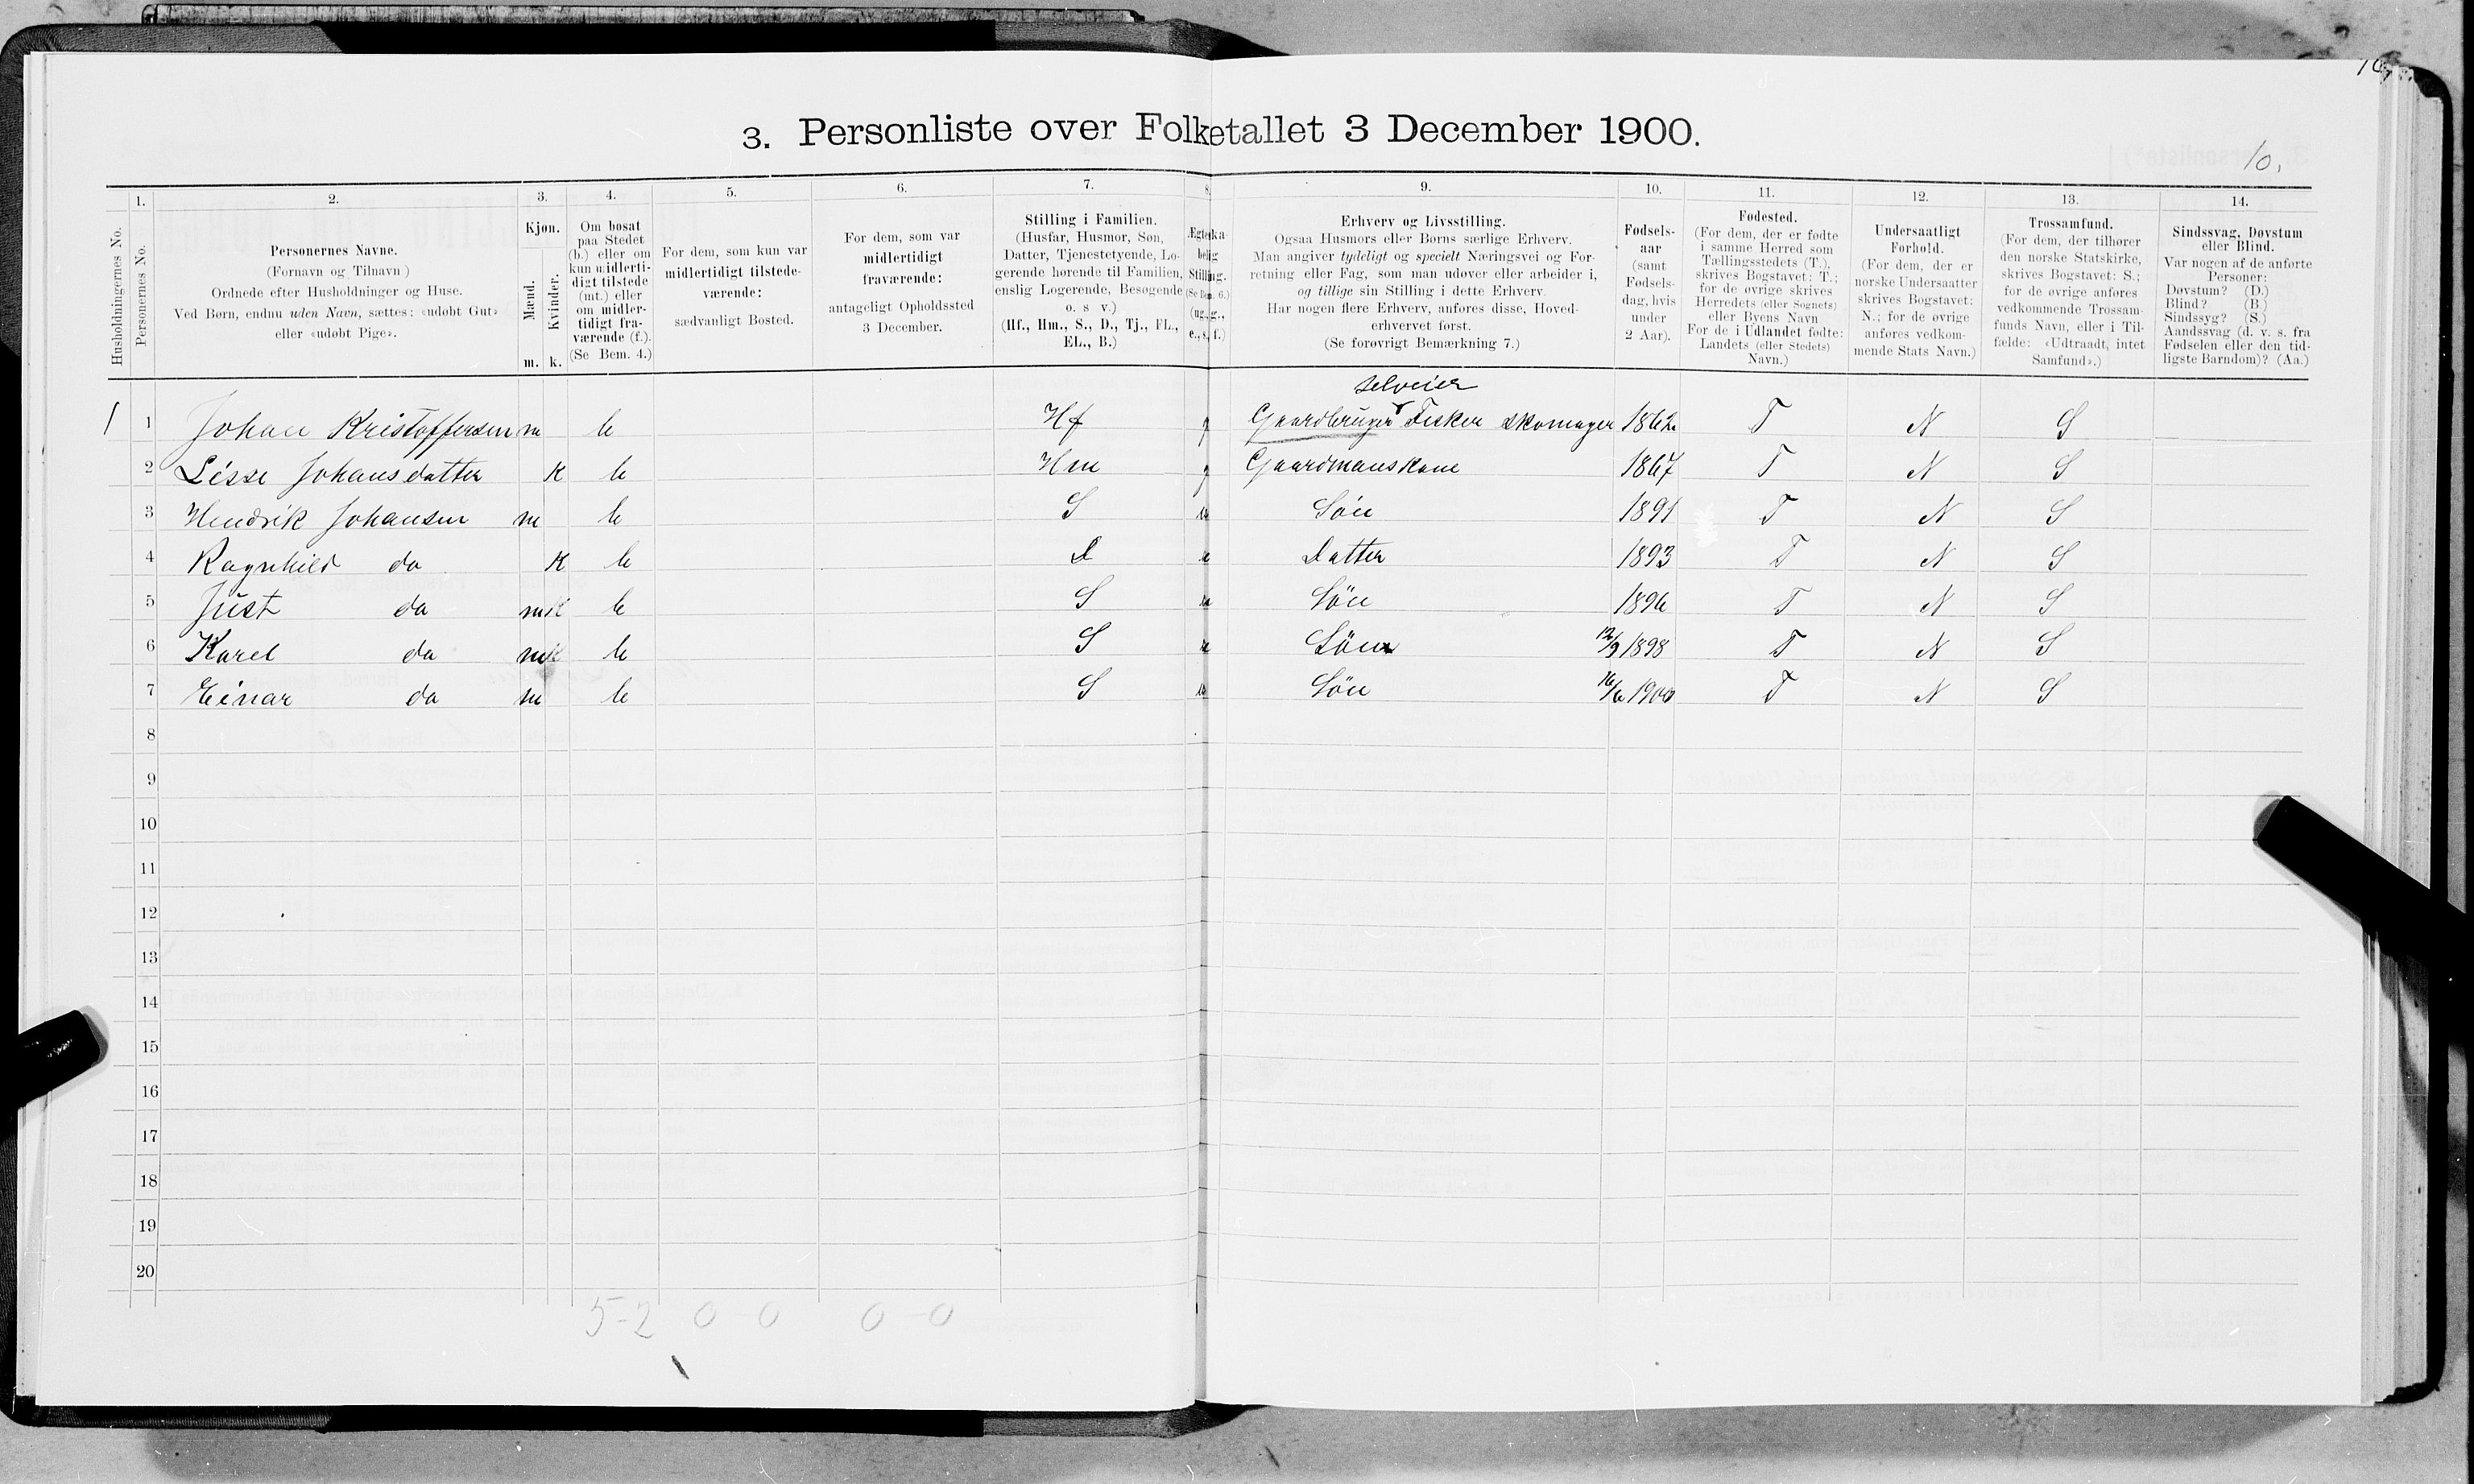 3. Personliste over Folketallet 3 December 1900.
10.
1. 2. 3. 4. 5. 6. 7. 8. 9. 10. 11. 12. 13. 14.
Husholdningernes No.
Personernes No.
Personernes Navne.
(Fornavn og Tilnavn )
Ordnede efter Husholdninger og Huse.
Ved Børn, endnu uden Navn, sættes: «udøbt Gut»
eller «udøbt Pige».
Kjøn.
Mænd.
Kvinder.
m. k.
Om bosat
paa Stedet
(b.) eller om
kun midlerti-
digt tilstede
(mt.) eller
om midler-
tidigt fra-
værende (f.).
(Se Bem. 4.)
For dem, som kun var
midlertidigt tilstede-
værende:
sædvanligt Bosted.
For dem, som var
midlertidigt
fraværende:
antageligt Opholdssted
3 December.
Stilling i Familien.
(Husfar, Husmor, Søn,
Datter, Tjenestetyende, Lo-
gerende hørende til Familien,
enslig Logerende, Besøgende
o. s v.)
(Hf., Hm., S., D., Tj., FL.,
EL., B.)
Ægteska-
belig
Stilling.
(Se Bem. 6.)
(ug., g.,
e., s., f.)
Erhverv og Livsstilling.
Ogsaa Husmors eller Børns særlige Erhverv.
Man angiver tydeligt og specielt Næringsvei og For-
retning eller Fag, som man udøver eller arbeider i,
og tillige sin Stilling i dette Erhverv.
Har nogen flere Erhverv, anføres disse, Hoved-
erhvervet først.
(Se forøvrigt Bemærkning 7.)
Fødsels-
aar
(samt
Fødsels-
dag, hvis
under
2 Aar).
Fødested.
(For dem, der er fødte
i samme Herred som
Tællingsstedets (T.),
skrives Bogstavet: T.;
for de øvrige skrives
Herredets (eller Sognets)
eller Byens Navn
For de i Udlandet fødte:
Landets (eller Stedets)
Navn.)
Undersaatligt
Forhold.
(For dem, der er
norske Undersaatter
skrives Bogstavet:
N.; for de øvrige
anføres vedkom-
mende Stats Navn.)
Trossamfund.
(For dem, der tilhører
den norske Statskirke,
skrives Bogstavet: S.;
for de øvrige anføres
vedkommende Trossam-
funds Navn, eller i Til-
fælde: «Udtraadt, intet
Samfund».)
Sindssvag, Døvstum
eller Blind.
Var nogen af de anførte
Personer:
Døvstum? (D.)
Blind? (B.)
Sindssyg? (S.)
Aandssvag (d. v. s. fra
Fødselen eller den tid-
ligste Barndom)? (Aa.)
selveier
1 1 Johan Kristoffersen m b Hf g Gaardbruger Fisker skomager 1862 T N S
2 Lisse Johansdatter K b Hm g Gaardmanskone 1867 T N S
3 Hendrik Johansen m b S u Søn 1891 T N S
4 Ragnhild do K b D u Datter 1893 T N S
5 Just do m b S u Søn 1896 T N S
6 Karel do m b S u Søn 12/9 1898 T N S
7 Einar do m b S u Søn 16/6 1900 T N S
8
9
10
11
12
13
14
15
16
17
18
19
20
5-2 0-0 0-0